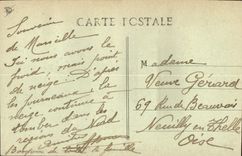 CARTE POSTALE
Souvenir
de Marseille
Ici nous avons le
froid, mais point
de neige. D'après
les journeaux la
neige continue à
tomber dans les
régions du Nord
Bonjour de famille
Madame
Veuve Gérard
69 Rue de Beauvais
Neuilly en Thelle
Oise